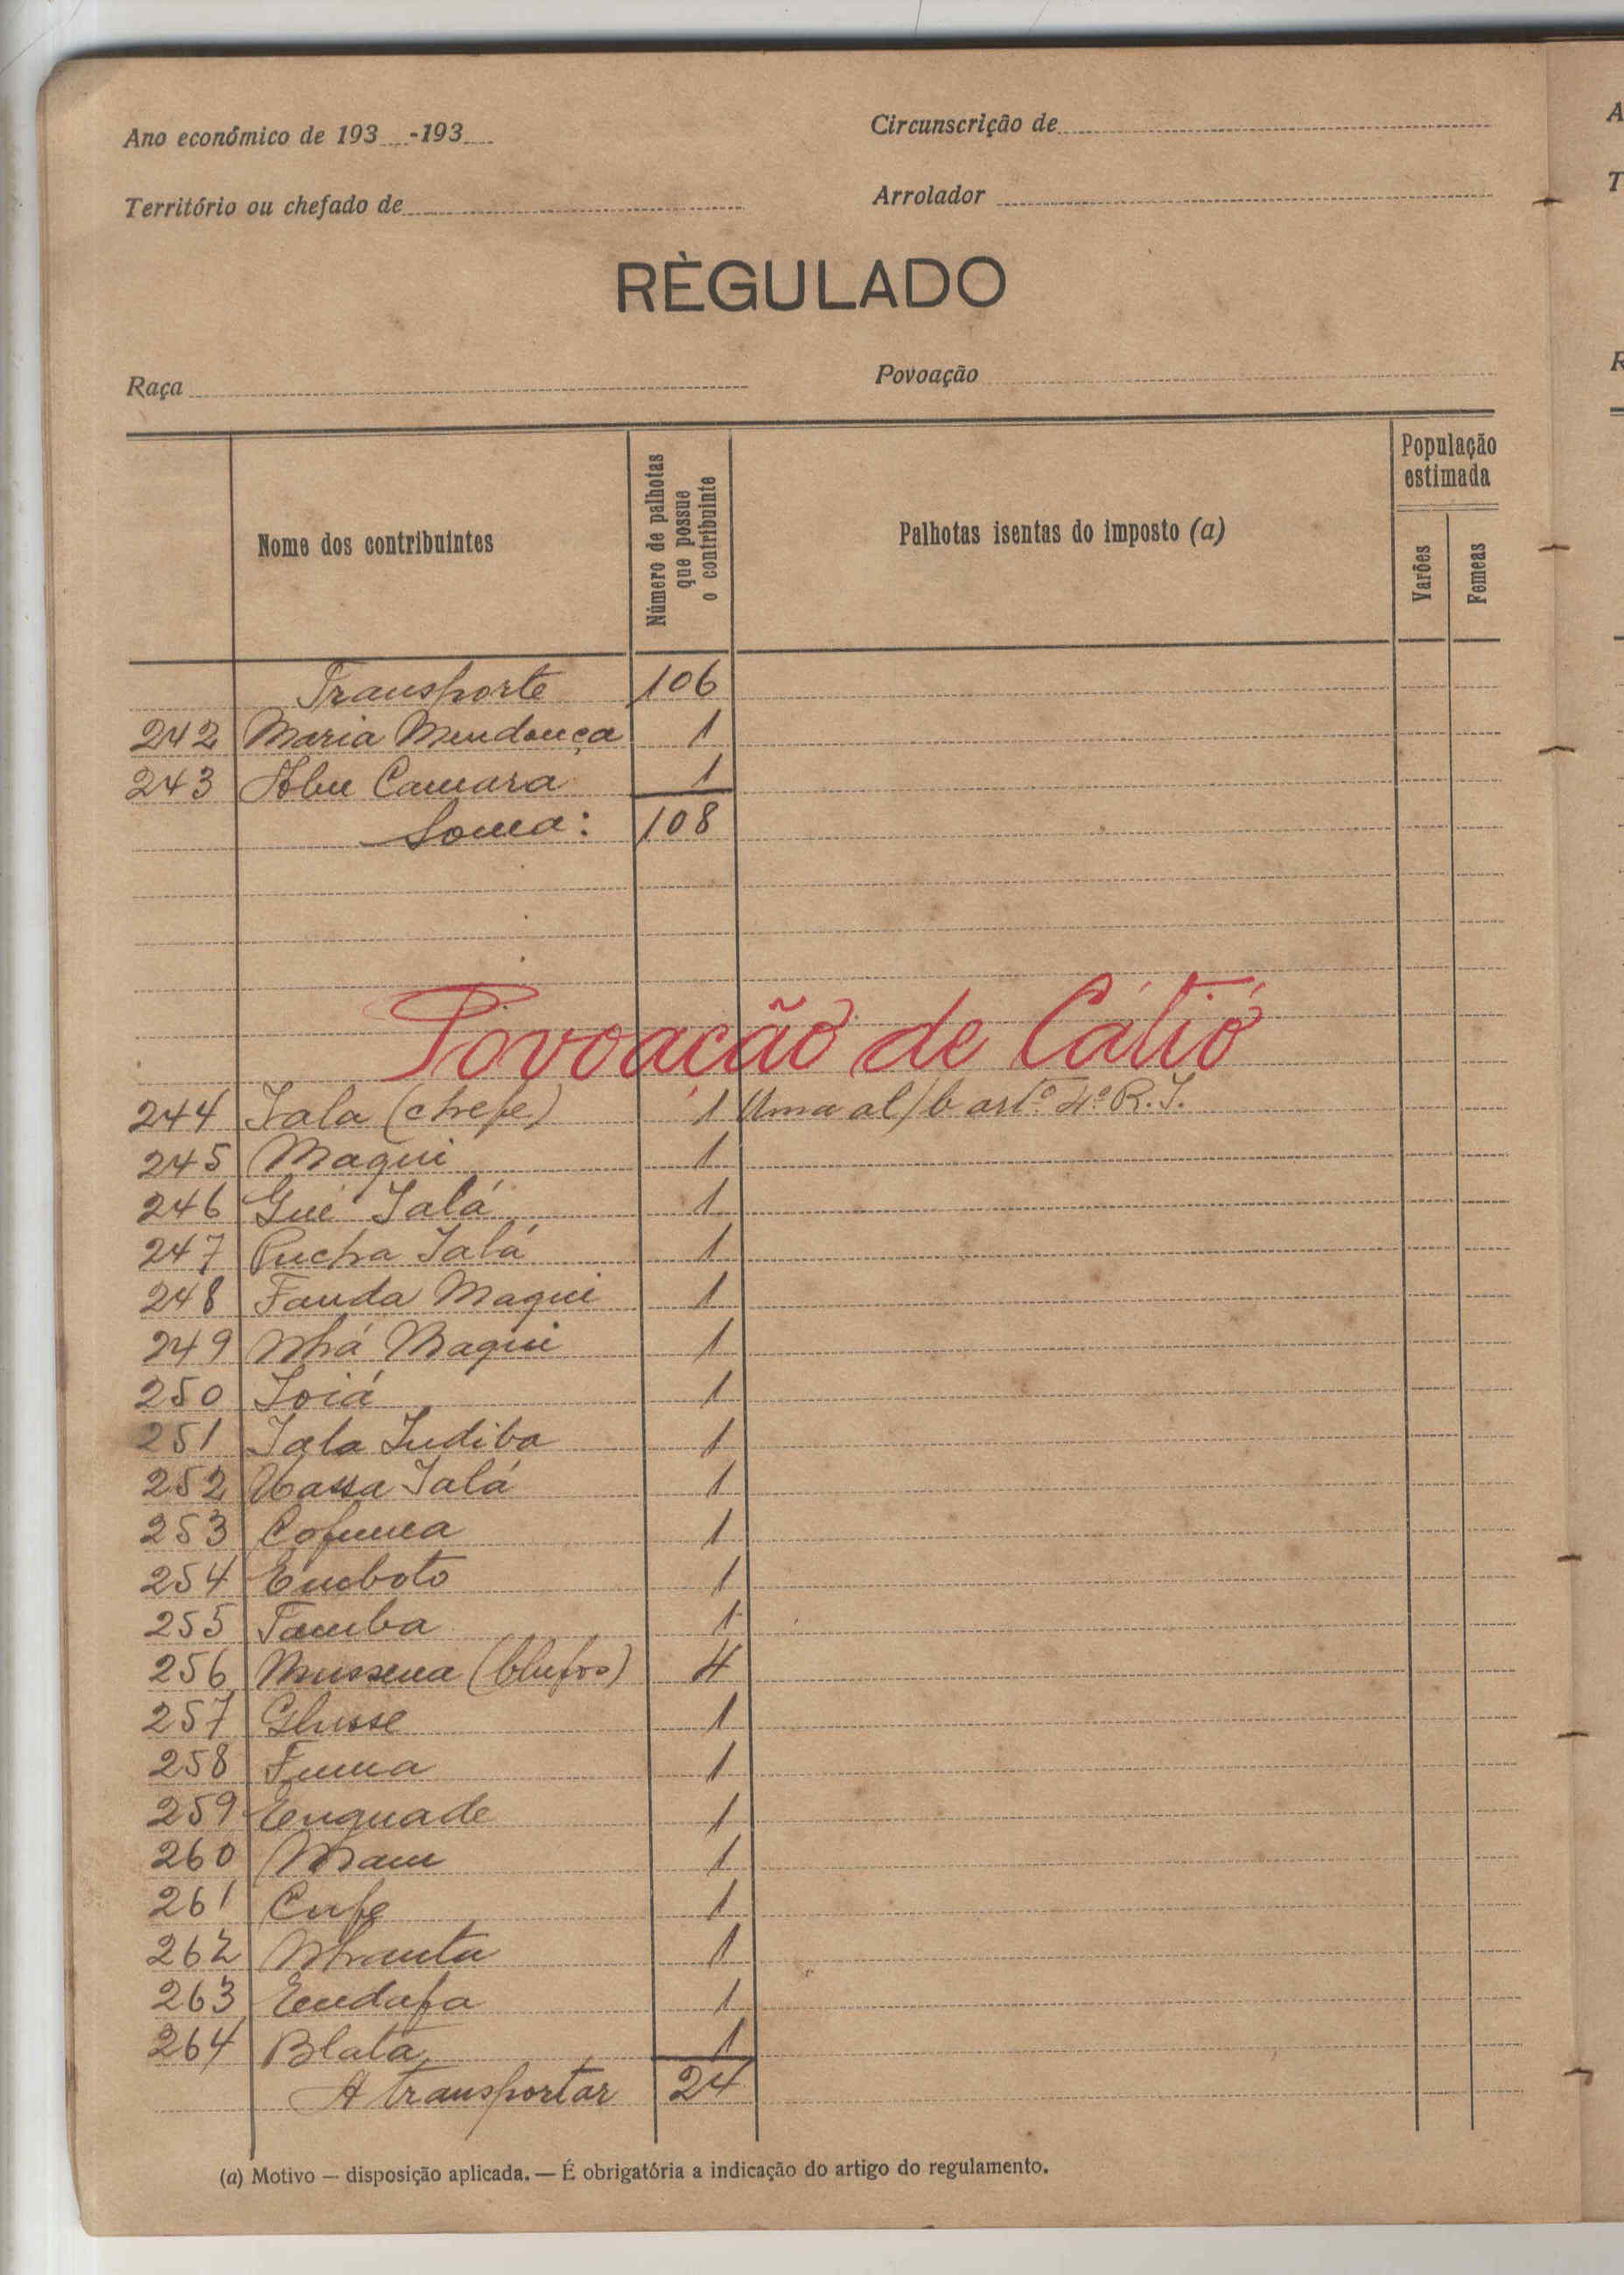 Ano económico de 193....-193.... Circunscrição de
Território ou chefado de Arrolador
RÈGULADO
Raça Povoação
Nome dos contribuintes
Número de palhotas que possue o contribuinte
Palhotas isentas do imposto (a)
População estimada
Varões
Femeas
Transporte 106
242 Maria Mendonça 1
243 Abu Camara 1
Soma: 108
Povoação de Cátió
244 Iala (chefe) 1 Uma al/b artº 4º R.I.
245 Maqui 1
246 Gué Ialá 1
247 Pucha Ialá 1
248 Fanda Maqui 1
249 Nhá Maqui 1
250 Ioiá 1
251 Iala Indiba 1
252 Uassa Ialá 1
253 1
254 Emboto 1
255 Tamba 1
256 (blufos) 4
257 Glusse 1
258 1
259 Enquade 1
260 1
261 Cufe 1
262 1
263 Endafa 1
264 Blata 1
A transportar 24
(a) Motivo — disposição aplicada. — É obrigatória a indicação do artigo do regulamento.
A
T
R